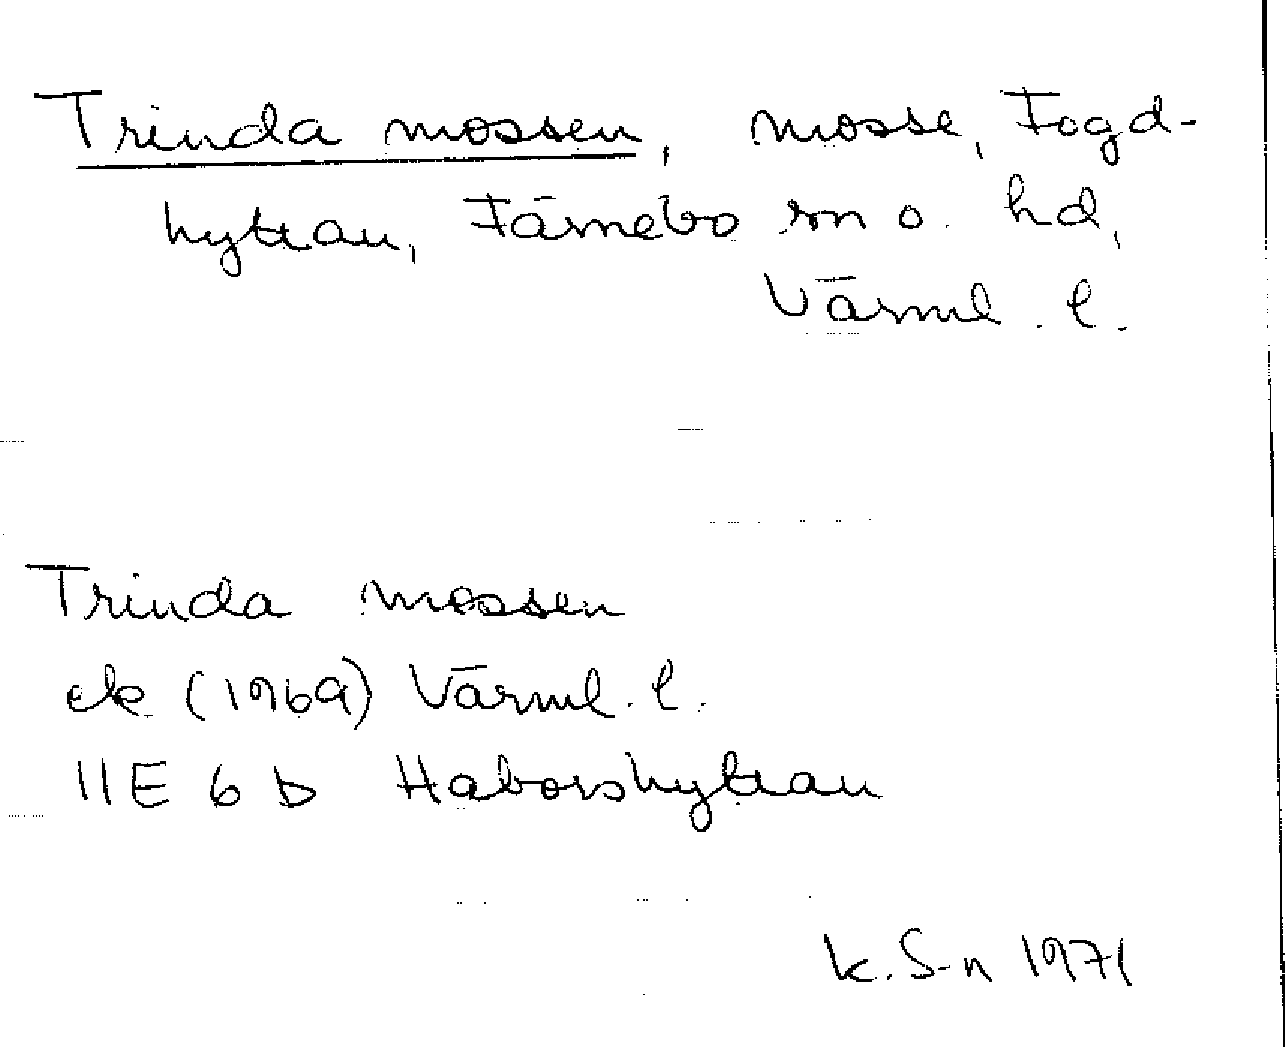 Trinda mossen, mosse, Fogd-
hyttan, Färnebo sn o. hd,
Värml. l.
Trinda mossen
ek (1969) Värml. l.
11E 6 b Haborshyttan
K. S-n 1971